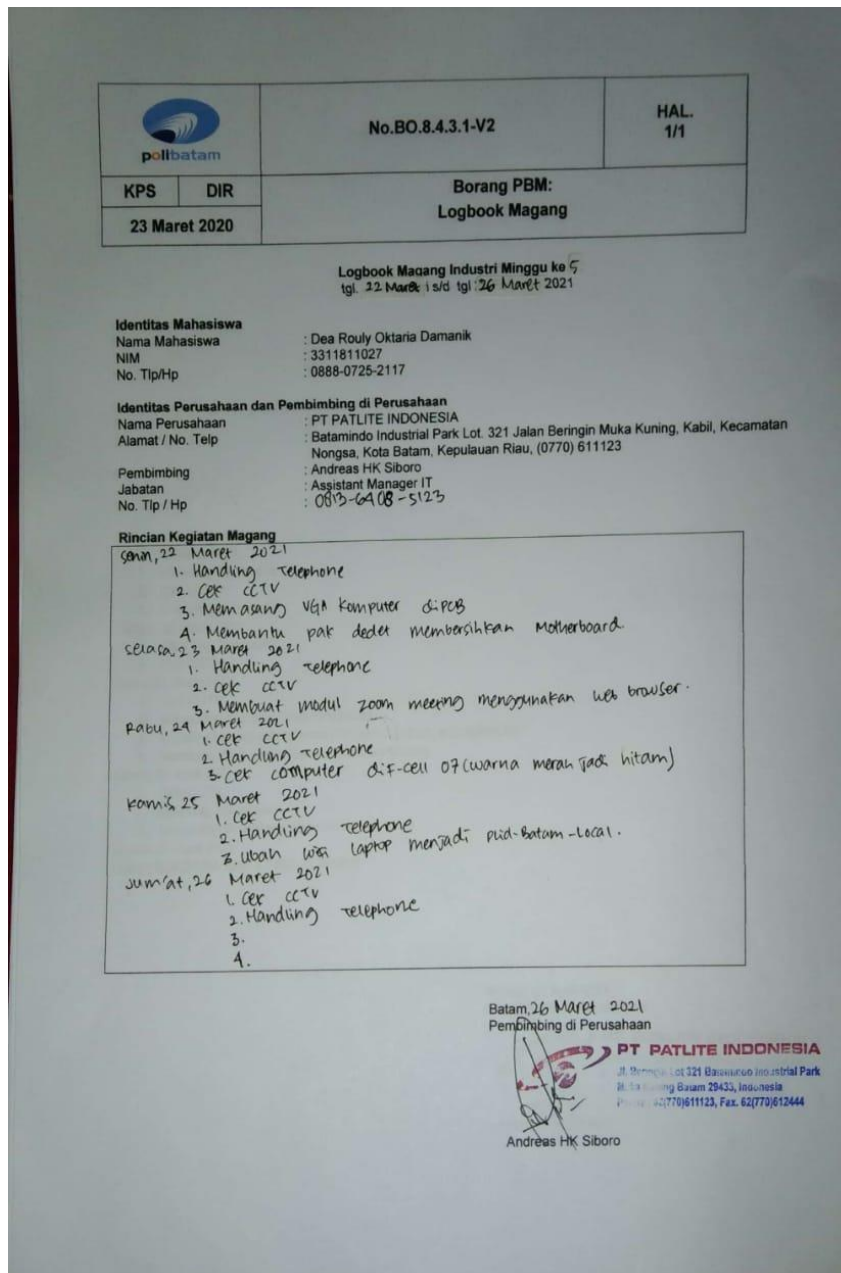 polibatam
No.BO.8.4.3.1-V2
HAL.
1/1
KPS DIR
23 Maret 2020
Borang PBM:
Logbook Magang
Logbook Magang Industri Minggu ke 5
tgl. 22 Maret i s/d tgl : 26 Maret 2021
Identitas Mahasiswa
Nama Mahasiswa : Dea Rouly Oktaria Damanik
NIM : 3311811027
No. Tlp/Hp : 0888-0725-2117
Identitas Perusahaan dan Pembimbing di Perusahaan
Nama Perusahaan : PT PATLITE INDONESIA
Alamat / No. Telp : Batamindo Industrial Park Lot. 321 Jalan Beringin Muka Kuning, Kabil, Kecamatan
Nongsa, Kota Batam, Kepulauan Riau, (0770) 611123
Pembimbing : Andreas HK Siboro
Jabatan : Assistant Manager IT
No. Tlp / Hp : 0813-6408-5123
Rincian Kegiatan Magang
Senin, 22 Maret 2021
1. Handling Telephone
2. Cek CCTV
3. Memasang VGA Komputer di PCB
4. Membantu pak dedet membersihkan Motherboard.
Selasa, 23 Maret 2021
1. Handling Telephone
2. Cek CCTV
3. Membuat modul zoom meeting menggunakan web browser.
Rabu, 24 Maret 2021
1. Cek CCTV
2. Handling Telephone
3. Cek computer di F-cell 07 (warna merah jadi hitam)
Kamis, 25 Maret 2021
1. Cek CCTV
2. Handling Telephone
3. Ubah wifi laptop menjadi plid-Batam-Local.
Jum'at, 26 Maret 2021
1. Cek CCTV
2. Handling Telephone
3.
4.
Batam, 26 Maret 2021
Pembimbing di Perusahaan
PT PATLITE INDONESIA
Lot 321 Batamindo Industrial Park
Batam 29433, Indonesia
62(770)611123, Fax. 62(770)612444
Andreas HK Siboro